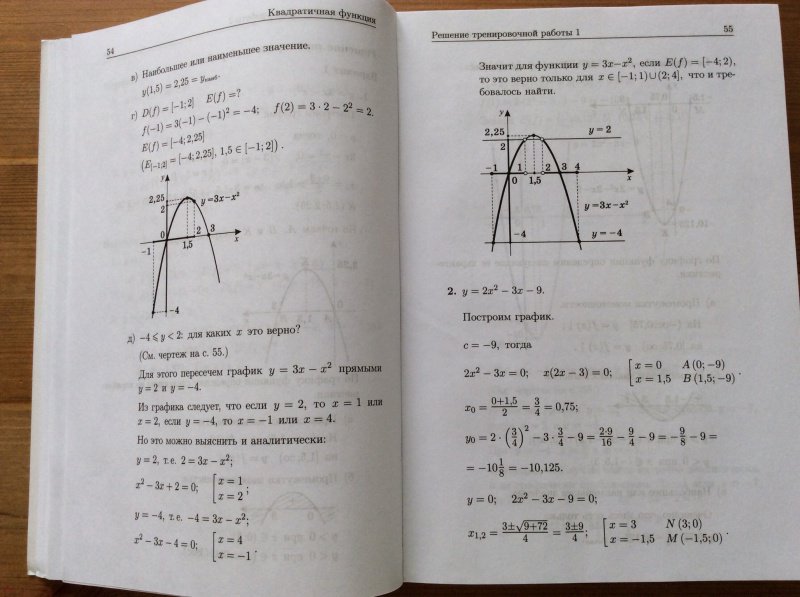 54
Квадратичная функция
в) Наибольшее или наименьшее значение.
y(1,5) = 2,25 = yнаиб.
г) D(f) = [−1; 2] E(f) = ?
f(−1) = 3(−1) − (−1)² = −4; f(2) = 3 · 2 − 2² = 2.
E(f) = [−4; 2,25]
(E[−1;2] = [−4; 2,25], 1,5 ∈ [−1; 2]) .
y
2,25
2
y = 3x − x²
0
2
3
−1
1,5
x
−4
д) −4 ⩽ y < 2: для каких x это верно?
(См. чертеж на с. 55.)
Для этого пересечем график y = 3x − x² прямыми
y = 2 и y = −4.
Из графика следует, что если y = 2, то x = 1 или
x = 2, если y = −4, то x = −1 или x = 4.
Но это можно выяснить и аналитически:
y = 2, т.е. 2 = 3x − x²;
x² − 3x + 2 = 0; [x = 1 x = 2;
y = −4, т.е. −4 = 3x − x²;
x² − 3x − 4 = 0; [x = 4 x = −1.
Решение тренировочной работы 1
55
Значит для функции y = 3x − x², если E(f) = [−4; 2),
то это верно только для x ∈ [−1; 1) ∪ (2; 4], что и тре-
бовалось найти.
y
2,25
2
y = 2
−1
1
2
3
4
0
1,5
x
y = 3x − x²
−4
y = −4
2. y = 2x² − 3x − 9.
Построим график.
c = −9, тогда
2x² − 3x = 0; x(2x − 3) = 0; [x = 0 A (0; −9) x = 1,5 B (1,5; −9).
x₀ = (0+1,5)/2 = 3/4 = 0,75;
y₀ = 2 · (3/4)² − 3 · 3/4 − 9 = 2·9/16 − 9/4 − 9 = −9/8 − 9 =
= −10 1/8 = −10,125.
y = 0; 2x² − 3x − 9 = 0;
x₁,₂ = (3±√(9+72))/4 = (3±9)/4; [x = 3 N (3; 0) x = −1,5 M (−1,5; 0).